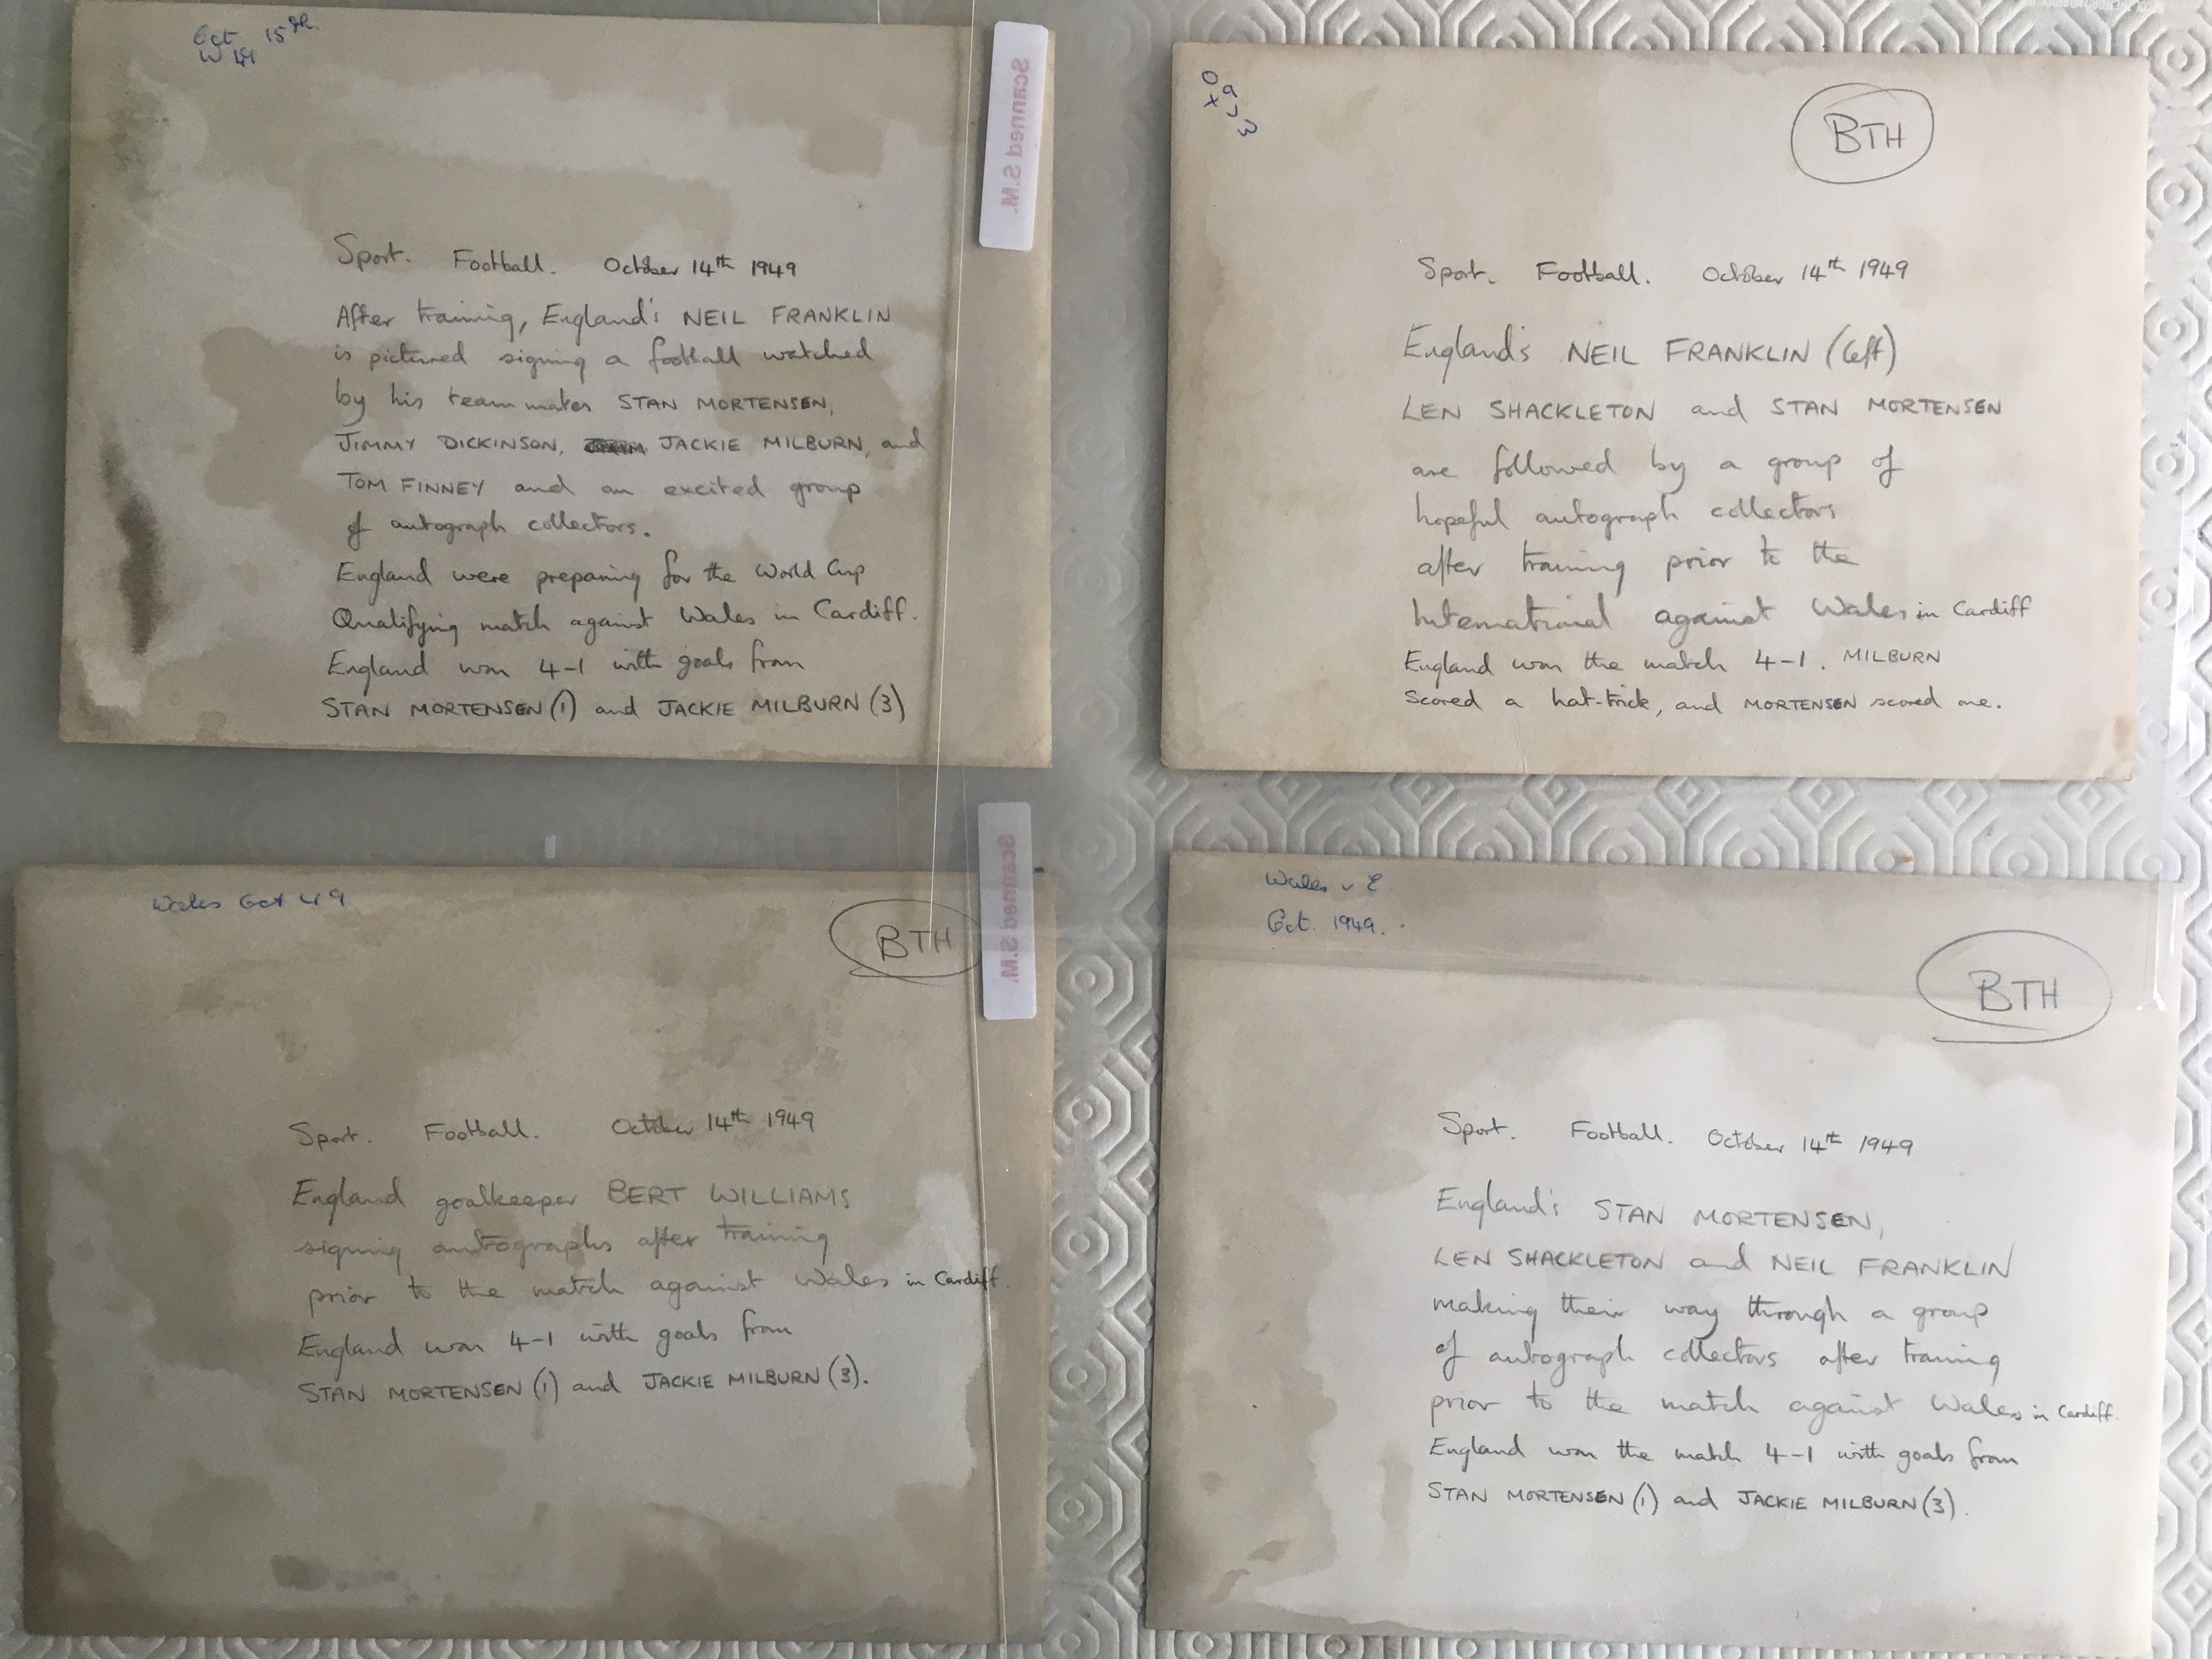 Oct 15th
Scanned S.M.
Sport. Football. October 14th 1949
After training, England's NEIL FRANKLIN
is pictured signing a football watched
by his team mates STAN MORTENSEN,
JIMMY DICKINSON, JACKIE MILBURN, and
TOM FINNEY and an excited group
of autograph collectors.
England were preparing for the World Cup
Qualifying match against Wales in Cardiff.
England won 4-1 with goals from
STAN MORTENSEN (1) and JACKIE MILBURN (3)
BTH
Sport. Football. October 14th 1949
England's NEIL FRANKLIN (left)
LEN SHACKLETON and STAN MORTENSEN
are followed by a group of
hopeful autograph collectors
after training prior to the
International against Wales in Cardiff
England won the match 4-1. MILBURN
scored a hat-trick, and MORTENSEN scored one.
Wales Oct 49
BTH
Scanned S.M.
Sport. Football. October 14th 1949
England goalkeeper BERT WILLIAMS
signing autographs after training
prior to the match against Wales in Cardiff.
England won 4-1 with goals from
STAN MORTENSEN (1) and JACKIE MILBURN (3).
Wales v E
Oct. 1949.
BTH
Sport. Football. October 14th 1949
England's STAN MORTENSEN,
LEN SHACKLETON and NEIL FRANKLIN
making their way through a group
of autograph collectors after training
prior to the match against Wales in Cardiff.
England won the match 4-1 with goals from
STAN MORTENSEN (1) and JACKIE MILBURN (3).